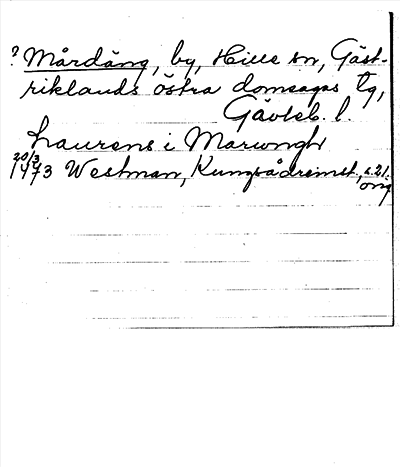 ? Mårdäng, by, Hille sn, Gäst-
riklands östra domsagas tg,
Gävleb. l.
Laurens i Marwngh
20/3 1473 Westman, Kungsådrainst., s. 21.
orig